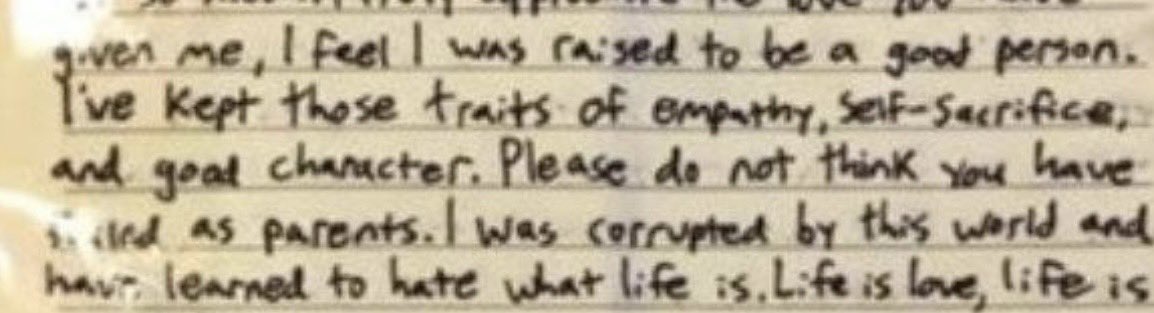 given me, I feel I was raised to be a good person.
I've kept those traits of empathy, self-sacrifice,
and good character. Please do not think you have
as parents. I was corrupted by this world and
have learned to hate what life is. Life is love, life is